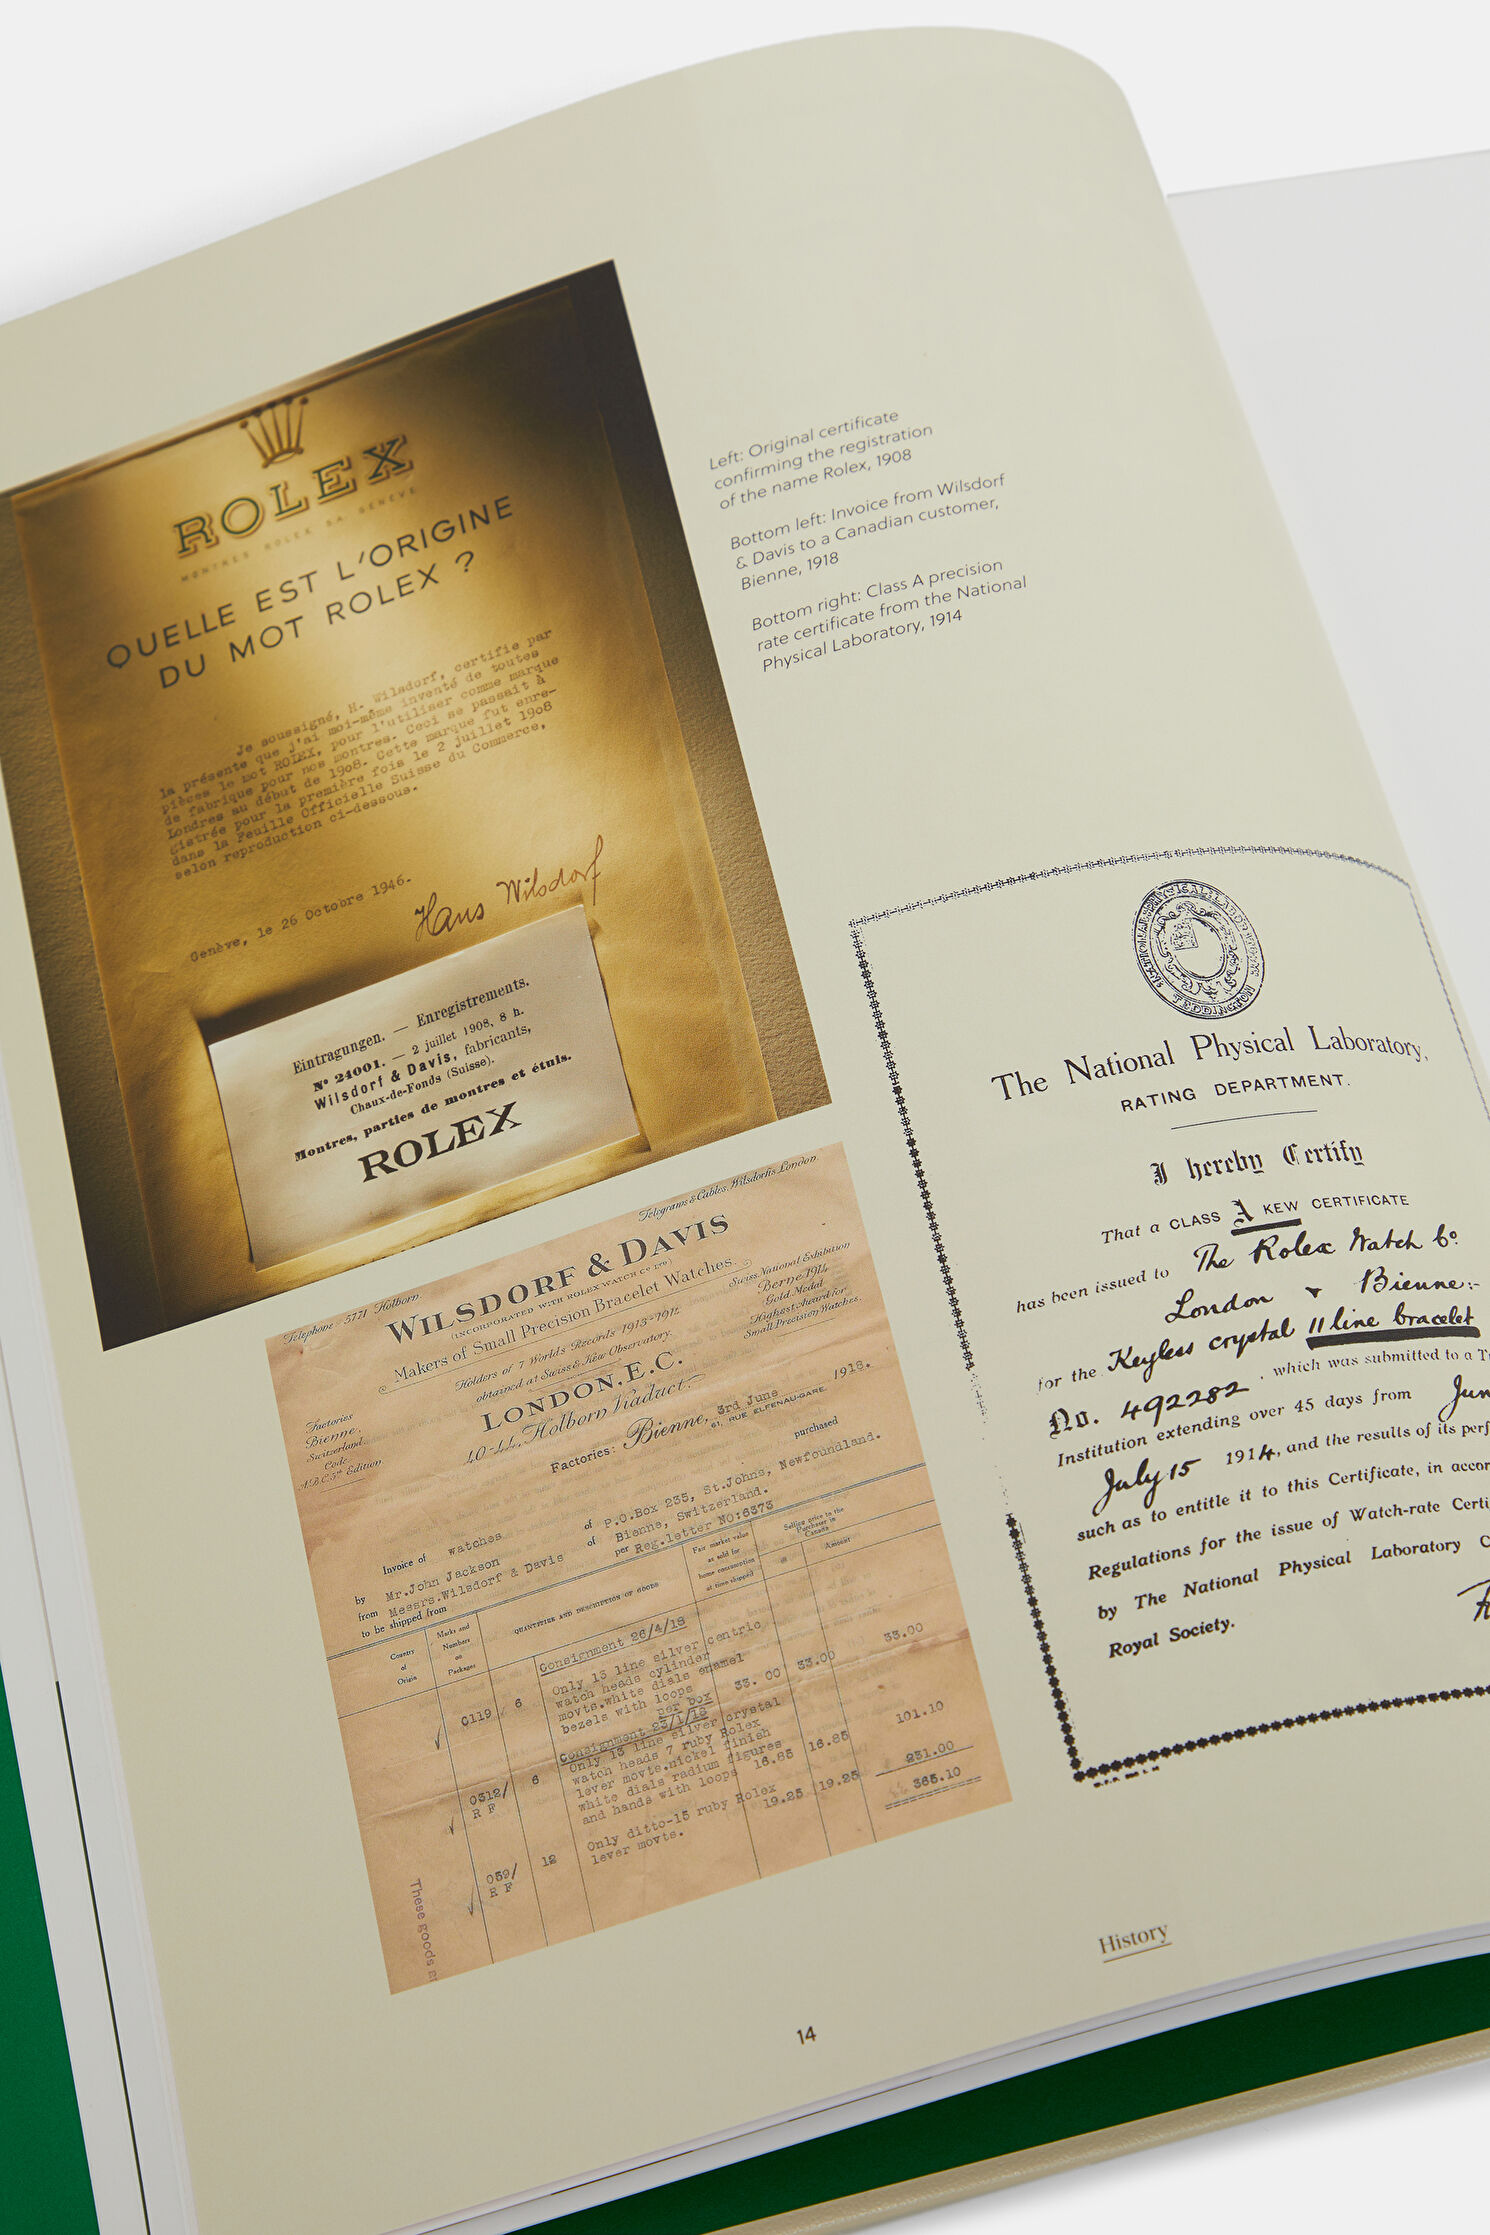 ROLEX
MONTRES ROLEX SA. GENÈVE
QUELLE EST L'ORIGINE
DU MOT ROLEX ?
Je soussigné, H. Wilsdorf, certifie par
la présente que j'ai moi-même inventé de toutes
pièces le mot ROLEX, pour l'utiliser comme marque
de fabrique pour nos montres. Ceci se passait à
Londres au début de 1908. Cette marque fut enre-
gistrée pour la première fois le 2 juillet 1908
dans la Feuille Officielle Suisse du Commerce,
selon reproduction ci-dessous.
Genève, le 26 Octobre 1946.
Hans Wilsdorf
Eintragungen. — Enregistrements.
Nº 24001. — 2 juillet 1908, 8 h.
Wilsdorf & Davis, fabricants,
Chaux-de-Fonds (Suisse).
Montres, parties de montres et étuis.
ROLEX
Left: Original certificate
confirming the registration
of the name Rolex, 1908
Bottom left: Invoice from Wilsdorf
& Davis to a Canadian customer,
Bienne, 1918
Bottom right: Class A precision
rate certificate from the National
Physical Laboratory, 1914
Telephone 5771 Holborn.
Telegrams & Cables, Wilsdorfis London.
WILSDORF & DAVIS
(INCORPORATED WITH ROLEX WATCH CO LTD)
Makers of Small Precision Bracelet Watches.
Holders of 7 Worlds Records 1913-1914
obtained at Swiss & Kew Observatory.
Swiss National Exhibition
Berne 1914
Gold Medal
Highest Award for
Small Precision Watches.
LONDON, E.C.
40-44, Holborn Viaduct.
Factories
Bienne,
Switzerland.
Code
A.B.C. 5th Edition
Factories: Bienne, 3rd June 1918.
61, RUE ELFENAU-GARE
Invoice of watches purchased
by Mr.John Jackson of P.O.Box 235, St.Johns, Newfoundland.
from Messrs.Wilsdorf & Davis of Bienne, Switzerland.
to be shipped from per Reg.letter NO:6373
Country
of
Origin
Marks and
Numbers
on
Packages
QUANTITIES AND DESCRIPTION OF GOODS
Fair market value
as sold for
home consumption
at time shipped
Selling price to the
Purchaser in
Canada
@
Amount
Consignment 26/4/18
0119 6 Only 13 line silver centric
watch heads cylinder
movts.white dials enamel
bezels with loops 33. 00 33.00 33.00
per box
Consignment 23/1/18
0312/ 6 Only 13 line silver crystal
R F watch heads 7 ruby Rolex
lever movts.nickel finish
white dials radium figures
and hands with loops 16.85 16.85 101.10
059/ 12 Only ditto-15 ruby Rolex
R F lever movts. 19.25 19.25 231.00
365.10
These goods
NATIONAL PHYSICAL LABORATORY
TEDDINGTON
The National Physical Laboratory,
RATING DEPARTMENT.
I hereby Certify
That a CLASS A KEW CERTIFICATE
has been issued to The Rolex Watch Co
London & Bienne:-
for the Keyless crystal 11 line bracelet
No. 492282, which was submitted to a
Institution extending over 45 days from
July 15 1914, and the results of its
such as to entitle it to this Certificate, in
Regulations for the issue of Watch-rate
by The National Physical Laboratory
Royal Society.
History
14